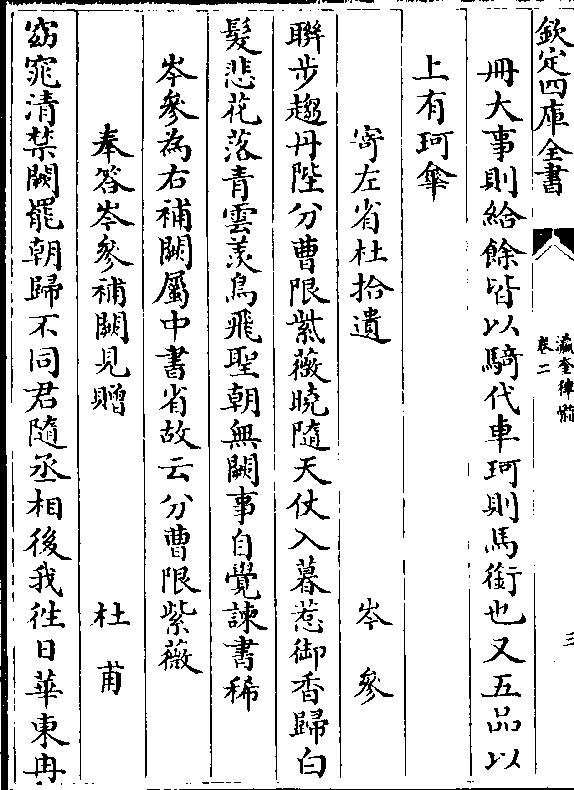 欽定四庫全書
瀛奎律髓
卷二
三
冊大事則給餘皆以騎代車珂則馬銜也又五品以
上有珂傘
寄左省杜拾遺 岑參
聯步趨丹陛分曹限紫薇曉隨天仗入暮惹御香歸白
髮悲花落青雲羨鳥飛聖朝無闕事自覺諫書稀
岑參為右補闕屬中書省故云分曹限紫薇
奉答岑參補闕見贈 杜甫
窈窕清禁闕罷朝歸不同君隨丞相後我徃日華東冉